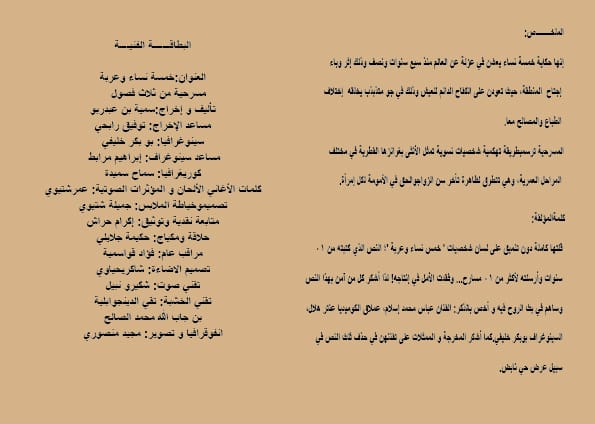 الملخص:
إنها حكاية خمسة نساء يعشن في عزلة عن العالم منذ سبع سنوات ونصف وذلك إثر وباء
إجتاح المنطقة، حيث تعودن على الكفاح الدائم للعيش وذلك في جو متذبذب يخلقه إختلاف
الطباع والمصالح معا.
المسرحية ترسم بطريقة تهكمية شخصيات نسوية تمثل الأنثى بغرائزها الفطرية في مختلف
المراحل العمرية، وهي تتطرق لظاهرة تأخر سن الزواج والحق في الأمومة لكل إمرأة.
كلمة المؤلفة:
قلتها كاملة دون تنميق على لسان شخصيات " خمس نساء وعربة "؛ النص الذي كتبته من ٠١
سنوات وأرسلته لأكثر من ٠١ مسارح... وفقدت الأمل في إنتاجه! لذا أشكر كل من آمن بهذا النص
وساهم في بث الروح فيه و أخص بالذكر: الفنان عباس محمد إسلام، عملاق الكوميديا عنتر هلال،
السينوغراف بوبكر خليفي.كما أشكر المخرجة و الممثلات على تفننهن في حذف ثلث النص في
سبيل عرض حي نابض.
البطاقة الفنية
العنوان:خمسة نساء وعربة
مسرحية من ثلاث فصول
تأليف و إخراج:سمية بن عبدربو
مساعد الإخراج: توفيق رابحي
سينوغرافيا: بو بكر خليفي
مساعد سينوغراف: إبراهيم مرابط
كوريغرافيا: سماح سميدة
كلمات الأغاني الألحان و المؤثرات الصوتية: عمر شتيوي
تصميم وخياطة الملابس: جميلة شتيوي
متابعة نقدية وتوثيق: إكرام حراش
حلاقة ومكياج: حكيمة جلايلي
مراقب عام: فؤاد قواسمية
تصميم الاضاءة: شاكر يحياوي
تقني صوت: شكيرو نبيل
تقني الخشبة: تقي الدين جوابلية
بن جاب الله محمد الصالح
انفوقرافيا و تصوير: مجيد منصوري